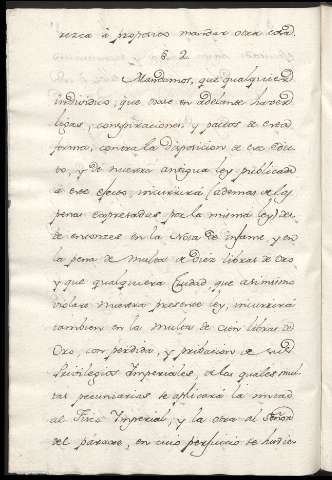 rezca ò proporos mandar otra cosa.
§. 2.
Mandamos, que qualquiera
individuo, que osare en adelante haver
ligas, conspiraciones, y pactos de esta
forma, contra la disposicion de este Edic-
to, y de nuestra antigua ley publicada
a este efecto, incurrirà (ademas de las
penas expresadas por la misma ley) des-
de entonces en la Nota de infame, y en
la pena de multa de Diez libras de Oro
y que qualquiera Ciudad que asimismo
violare nuestra presente ley, incurrirà
tambien en la multa de cien libras de
Oro, con perdida, y privacion de sus
Privilegios Imperiales, de las quales mul-
tas pecuniarias se aplicarà la mitad
al Fisco Imperial, y la otra al Señor
del parage, en cuio perjuicio se hubie-